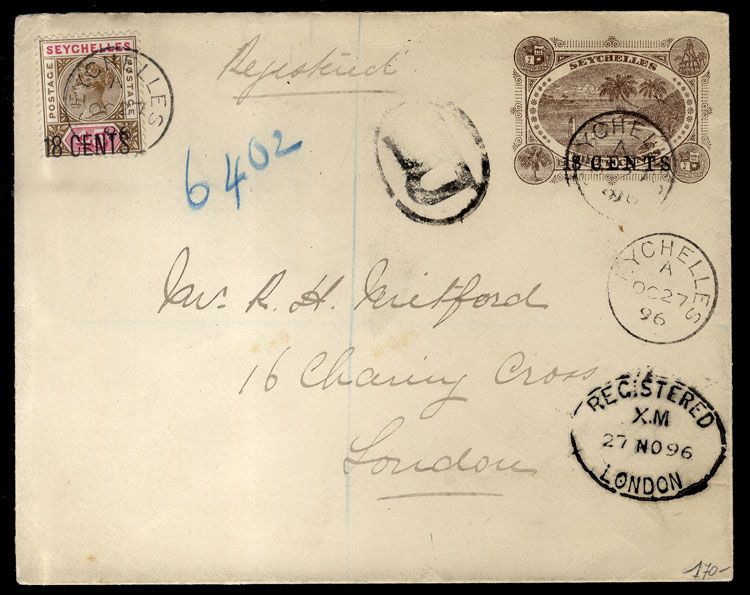 SEYCHELLES
POSTAGE
POSTAGE
18 CENTS
SEYCHELLES
Registered
R
6402
SEYCHELLES
18 CENTS
SEYCHELLES
A
96
SEYCHELLES
A
OC 27
96
Mr R. H. Mitford
16 Charing Cross
London
REGISTERED
X.M
27 NO 96
LONDON
170-